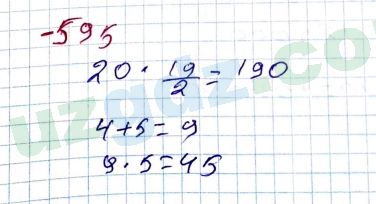 -595
20 · 19/2 = 190
4+5=9
9·5=45
uzgdz.com